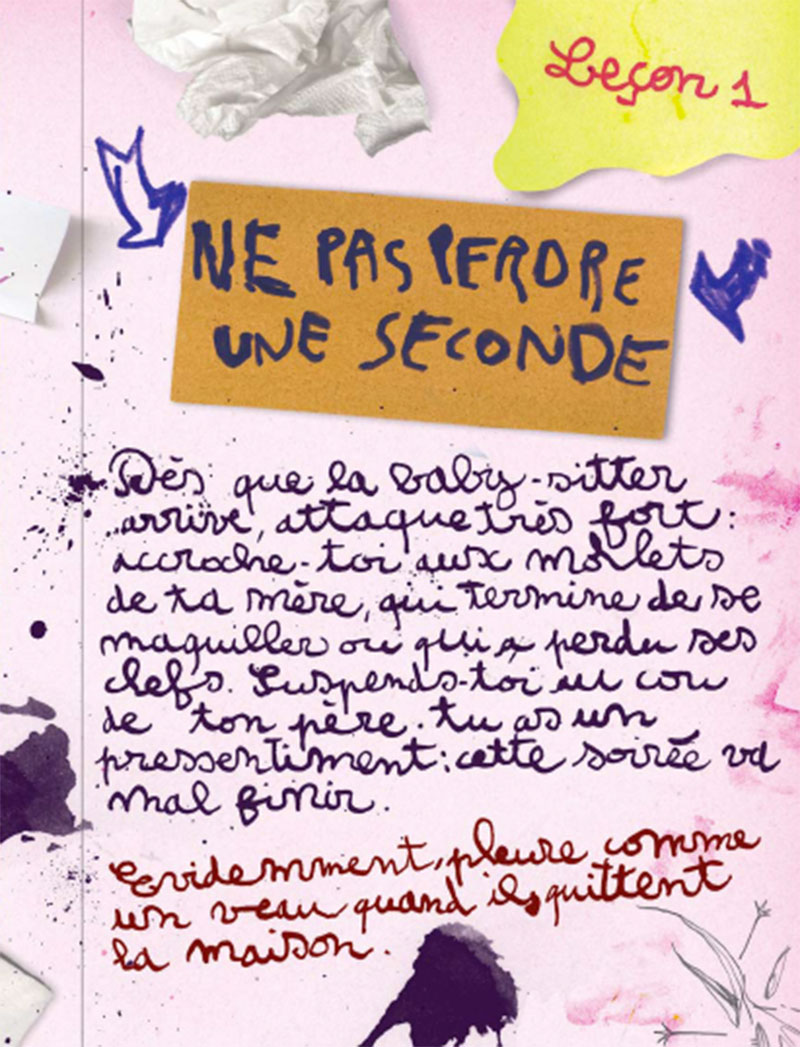 Leçon 1
NE PAS PERDRE
UNE SECONDE
Dès que la baby-sitter
arrive, attaque très fort :
accroche-toi aux mollets
de ta mère, qui termine de se
maquiller ou qui a perdu ses
clefs. Suspends-toi au cou
de ton père. tu as un
pressentiment : cette soirée va
mal finir.
Evidemment, pleure comme
un veau quand ils quittent
la maison.